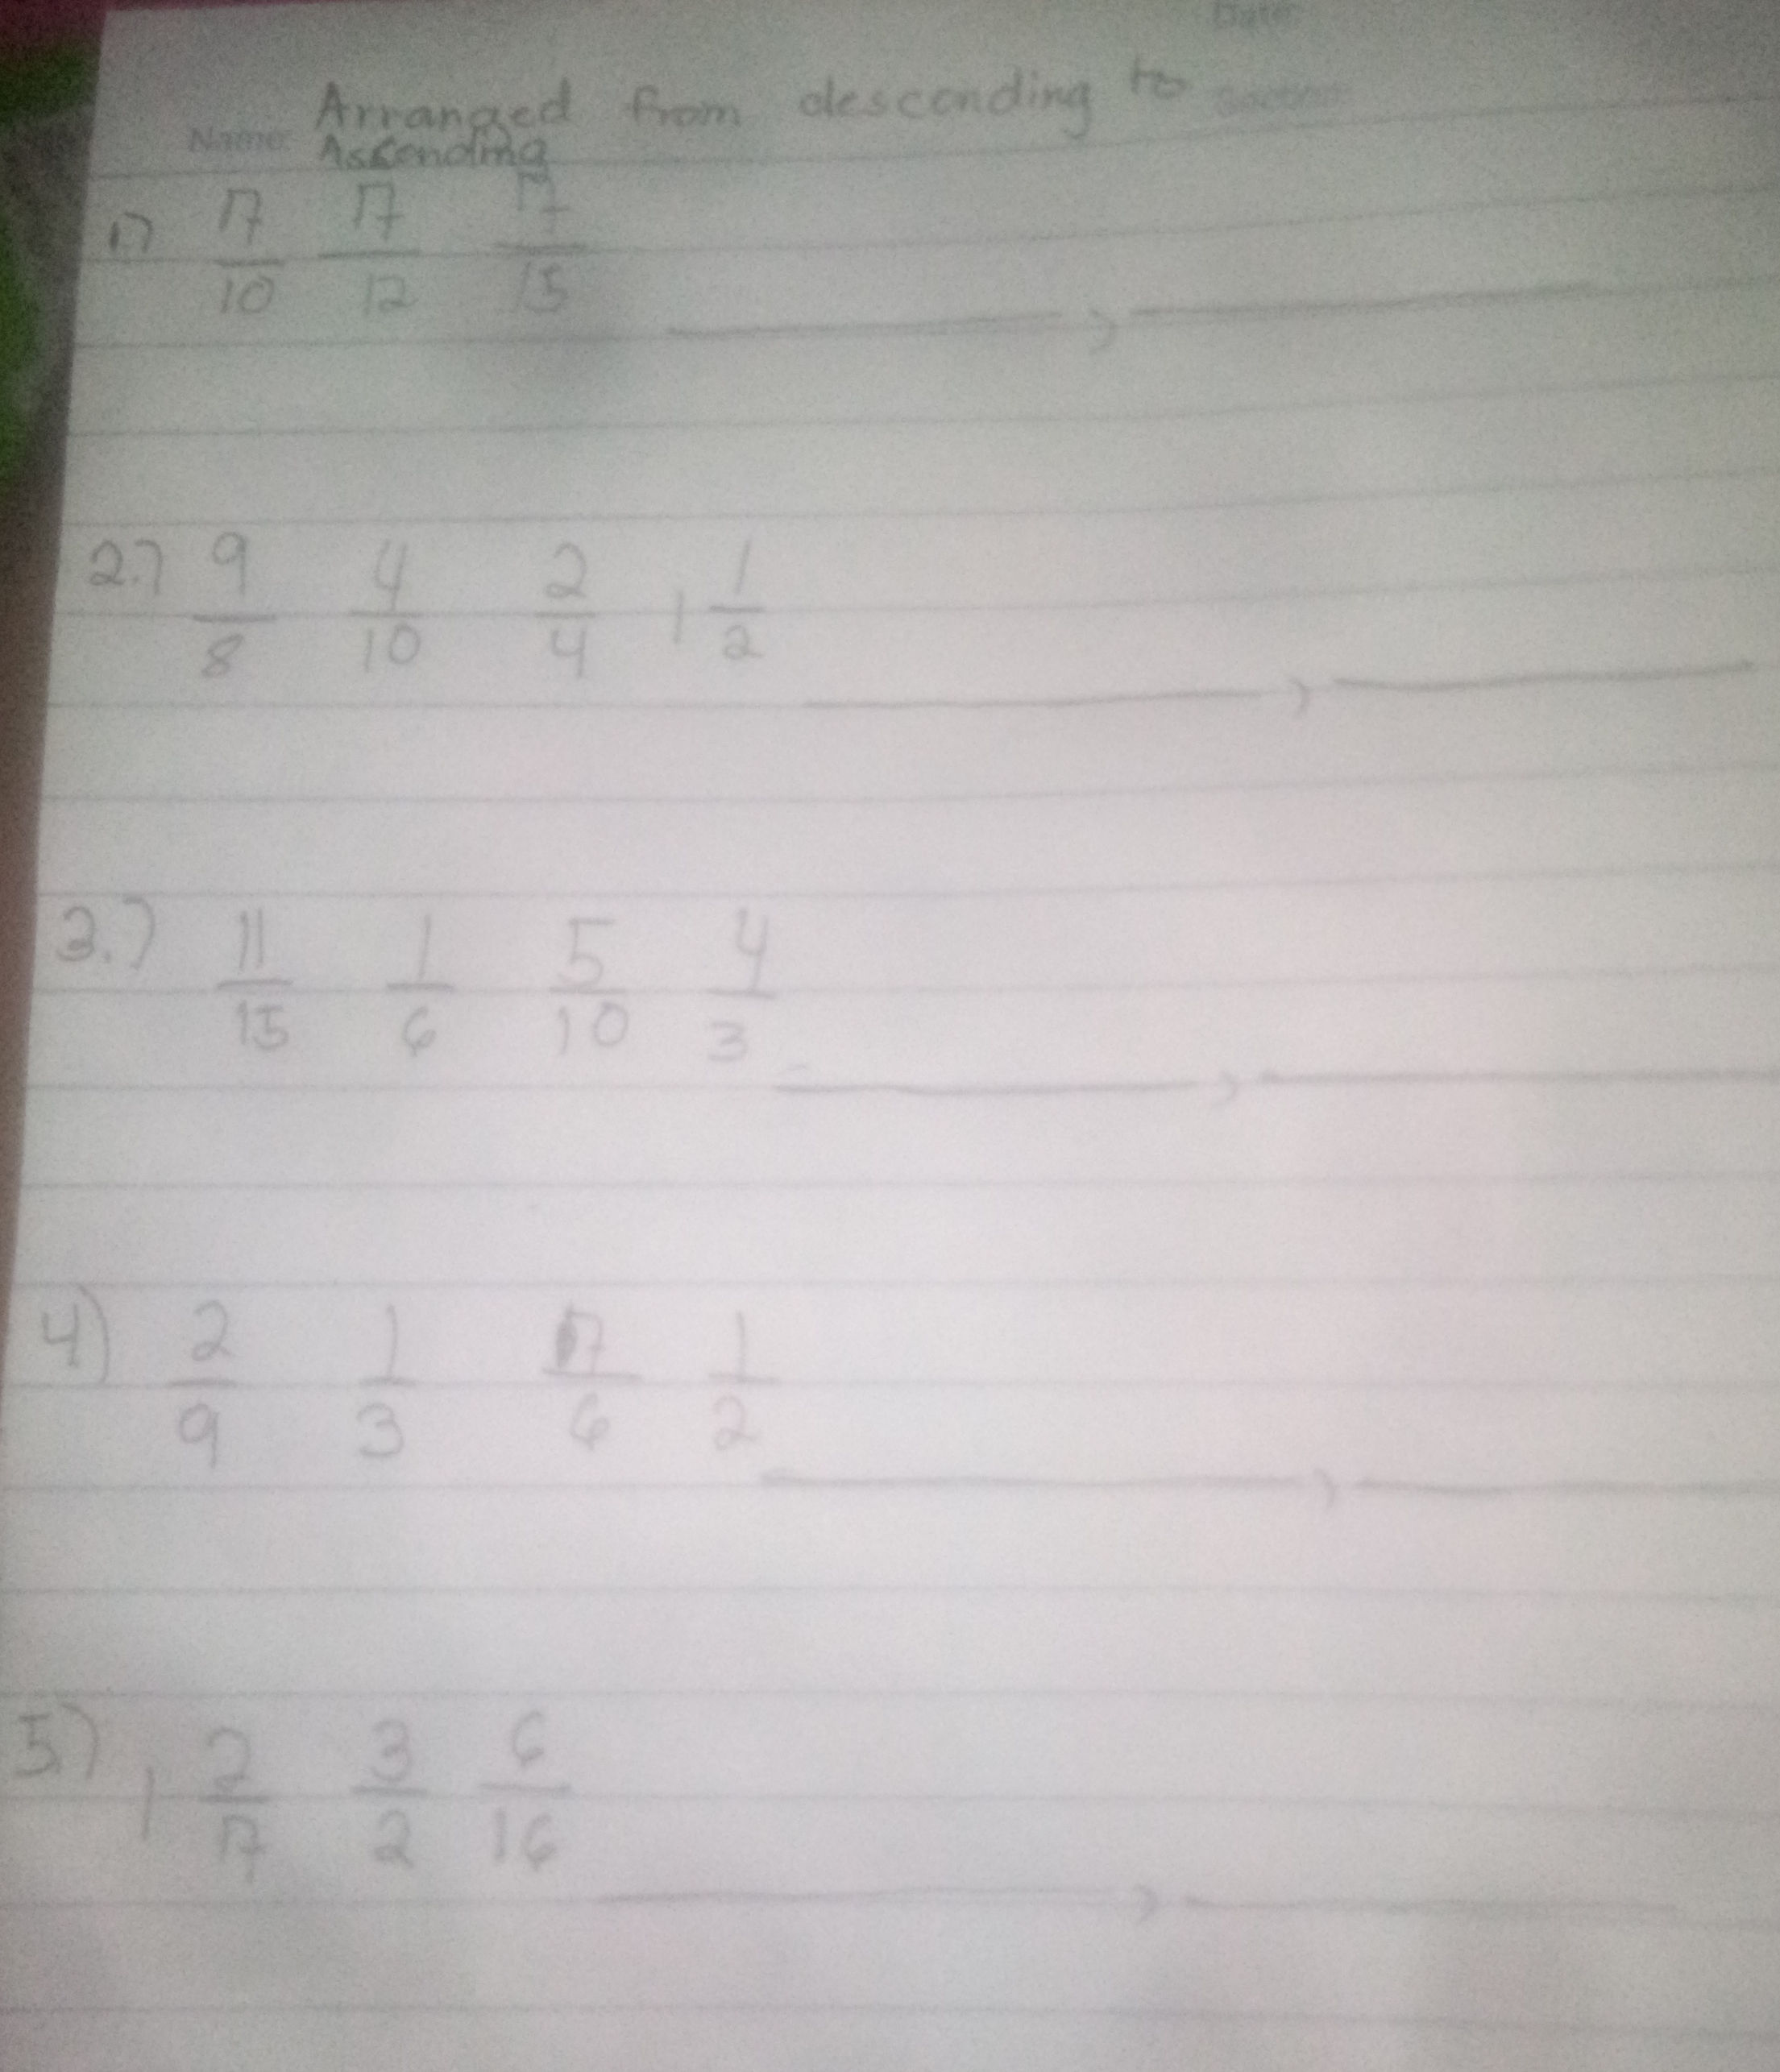 Date:
Arranged from descending to Section:
Name: Ascending
1.) 17/10 17/12 17/15 ________, ________
2.) 9/8 4/10 2/4 1 1/2 ________, ________
3.) 11/15 1/6 5/10 4/3 ________, ________
4) 2/9 1/3 7/6 1/2 ________, ________
5.) 1 2/7 3/2 6/16 ________, ________